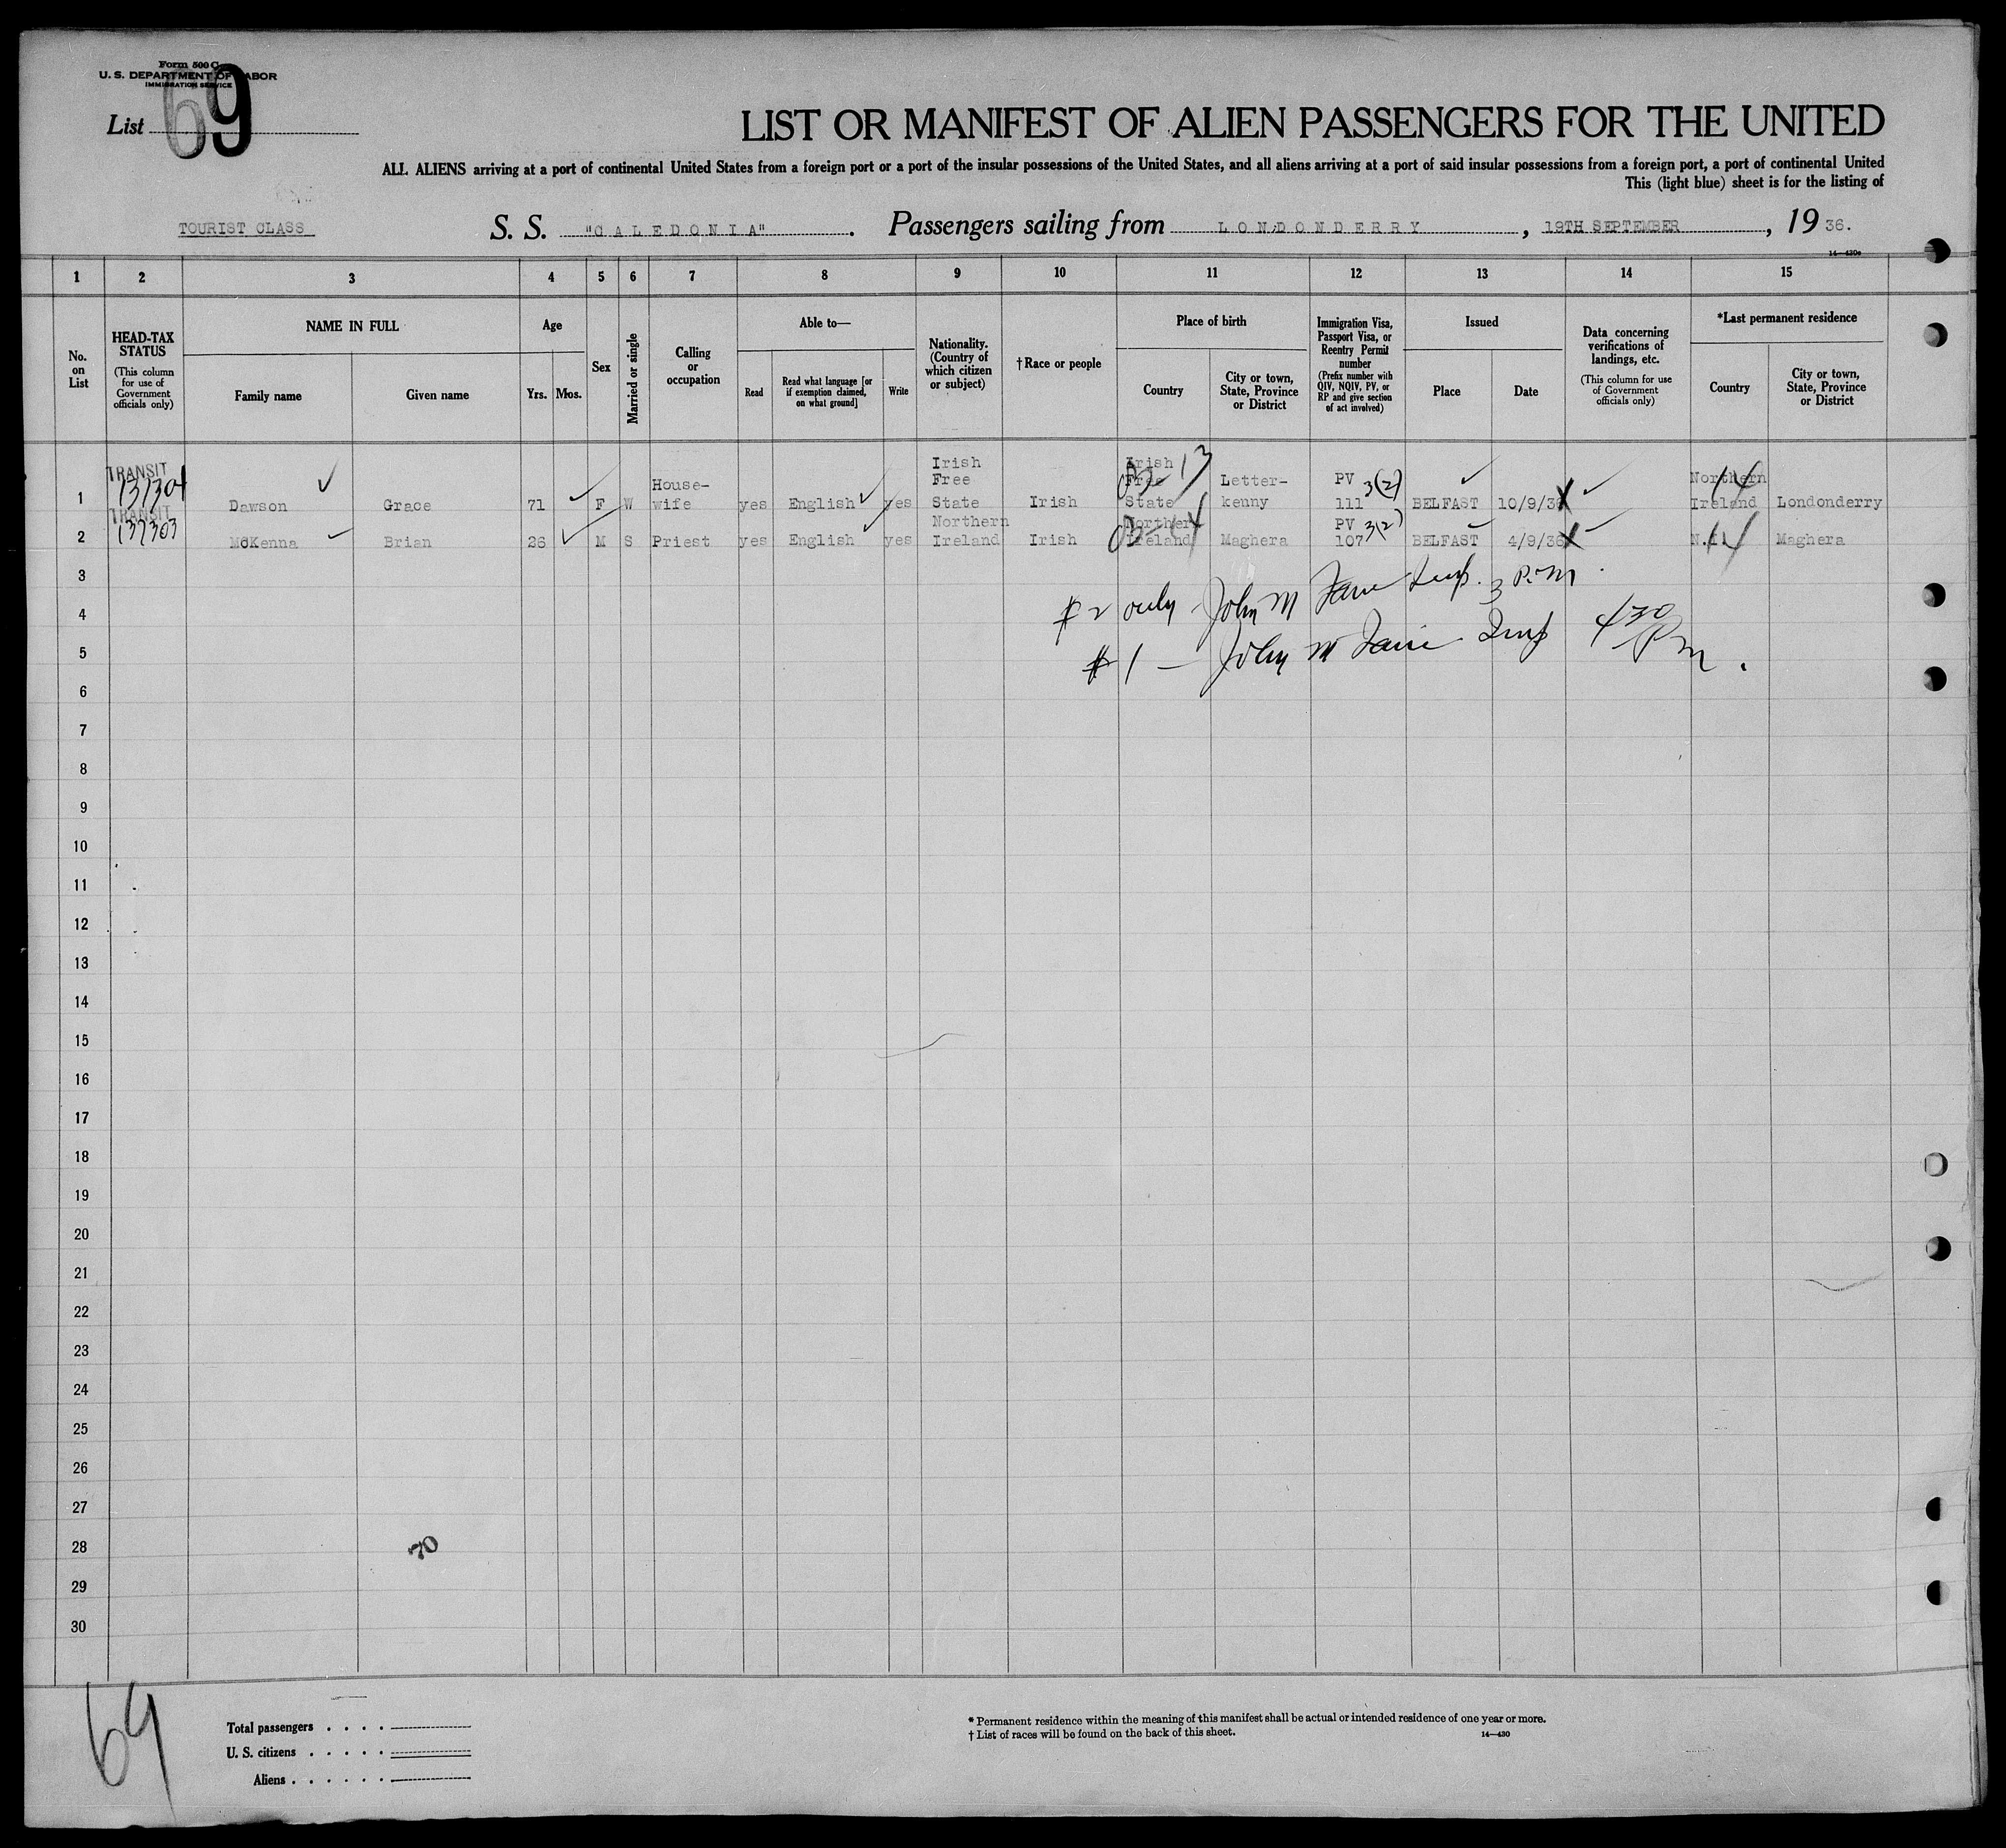 Form 500 C
U. S. DEPARTMENT OF LABOR
IMMIGRATION SERVICE
List 69
LIST OR MANIFEST OF ALIEN PASSENGERS FOR THE UNITED
ALL ALIENS arriving at a port of continental United States from a foreign port or a port of the insular possessions of the United States, and all aliens arriving at a port of said insular possessions from a foreign port, a port of continental United
This (light blue) sheet is for the listing of
TOURIST CLASS S. S. "CALEDONIA". Passengers sailing from LONDONDERRY, 19TH SEPTEMBER, 1936.
14—430a
1 2 3 4 5 6 7 8 9 10 11 12 13 14 15
No. on List
HEAD-TAX STATUS
(This column for use of Government officials only)
NAME IN FULL
Family name Given name
Age
Yrs. Mos.
Sex
Married or single
Calling or occupation
Able to—
Read
Read what language [or if exemption claimed, on what ground]
Write
Nationality. (Country of which citizen or subject)
† Race or people
Place of birth
Country
City or town, State, Province or District
Immigration Visa, Passport Visa, or Reentry Permit number
(Prefix number with QIV, NQIV, PV, or RP and give section of act involved)
Issued
Place Date
Data concerning verifications of landings, etc.
(This column for use of Government officials only)
*Last permanent residence
Country
City or town, State, Province or District
1 TRANSIT 137304 Dawson Grace 71 F W House-wife yes English yes Irish Free State Irish Irish Free State 13 Letter-kenny PV 111 3(2) BELFAST 10/9/36 Northern Ireland 14 Londonderry
2 TRANSIT 137303 McKenna Brian 26 M S Priest yes English yes Northern Ireland Irish Northern Ireland 14 Maghera PV 107 3(2) BELFAST 4/9/36 N.I. 14 Maghera
3
# 2 only - John M Insp. 3 P.M.
4
# 1 — John M Insp 4 30 P.M.
5
6
7
8
9
10
11
12
13
14
15
16
17
18
19
20
21
22
23
24
25
26
27
28
70
29
30
69
Total passengers
U. S. citizens
Aliens
* Permanent residence within the meaning of this manifest shall be actual or intended residence of one year or more.
† List of races will be found on the back of this sheet.
14—430